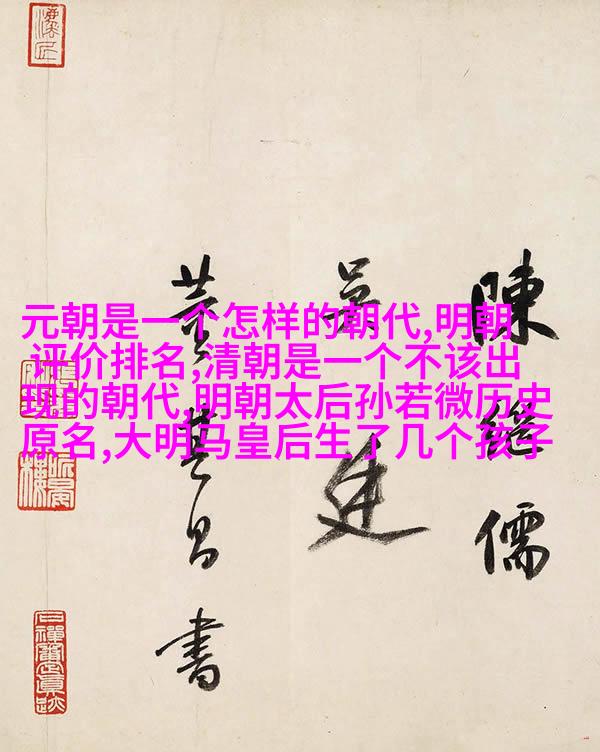 元朝是一个怎样的朝代,明朝
评价排名,清朝是一个不该出
现的朝代,明朝太后孙若微历史
原名,大明马皇后生了几个孩子
陳繼儒
吳廷
董其昌書